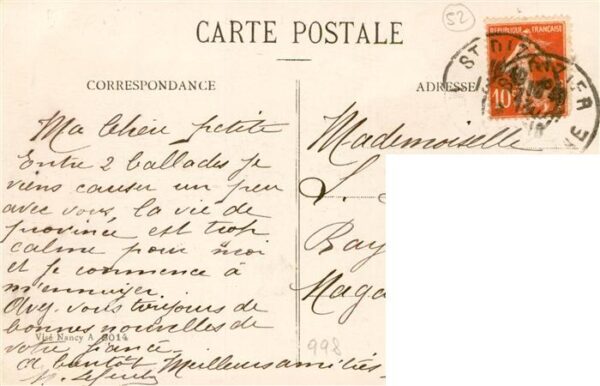 52
CARTE POSTALE
CORRESPONDANCE
ADRESSE
REPUBLIQUE FRANÇAISE
10
ST DIZIER
Ma Chère petite
Entre 2 ballades je
viens causer un peu
avec vous, la vie de
province est trop
calme pour moi
et je commence à
m'ennuyer.
Avez-vous toujours de
bonnes nouvelles de
votre fiancé.
A bientôt Meilleurs amitiés
Mademoiselle
L.
Ray
Maga
Visé Nancy A 2014
998